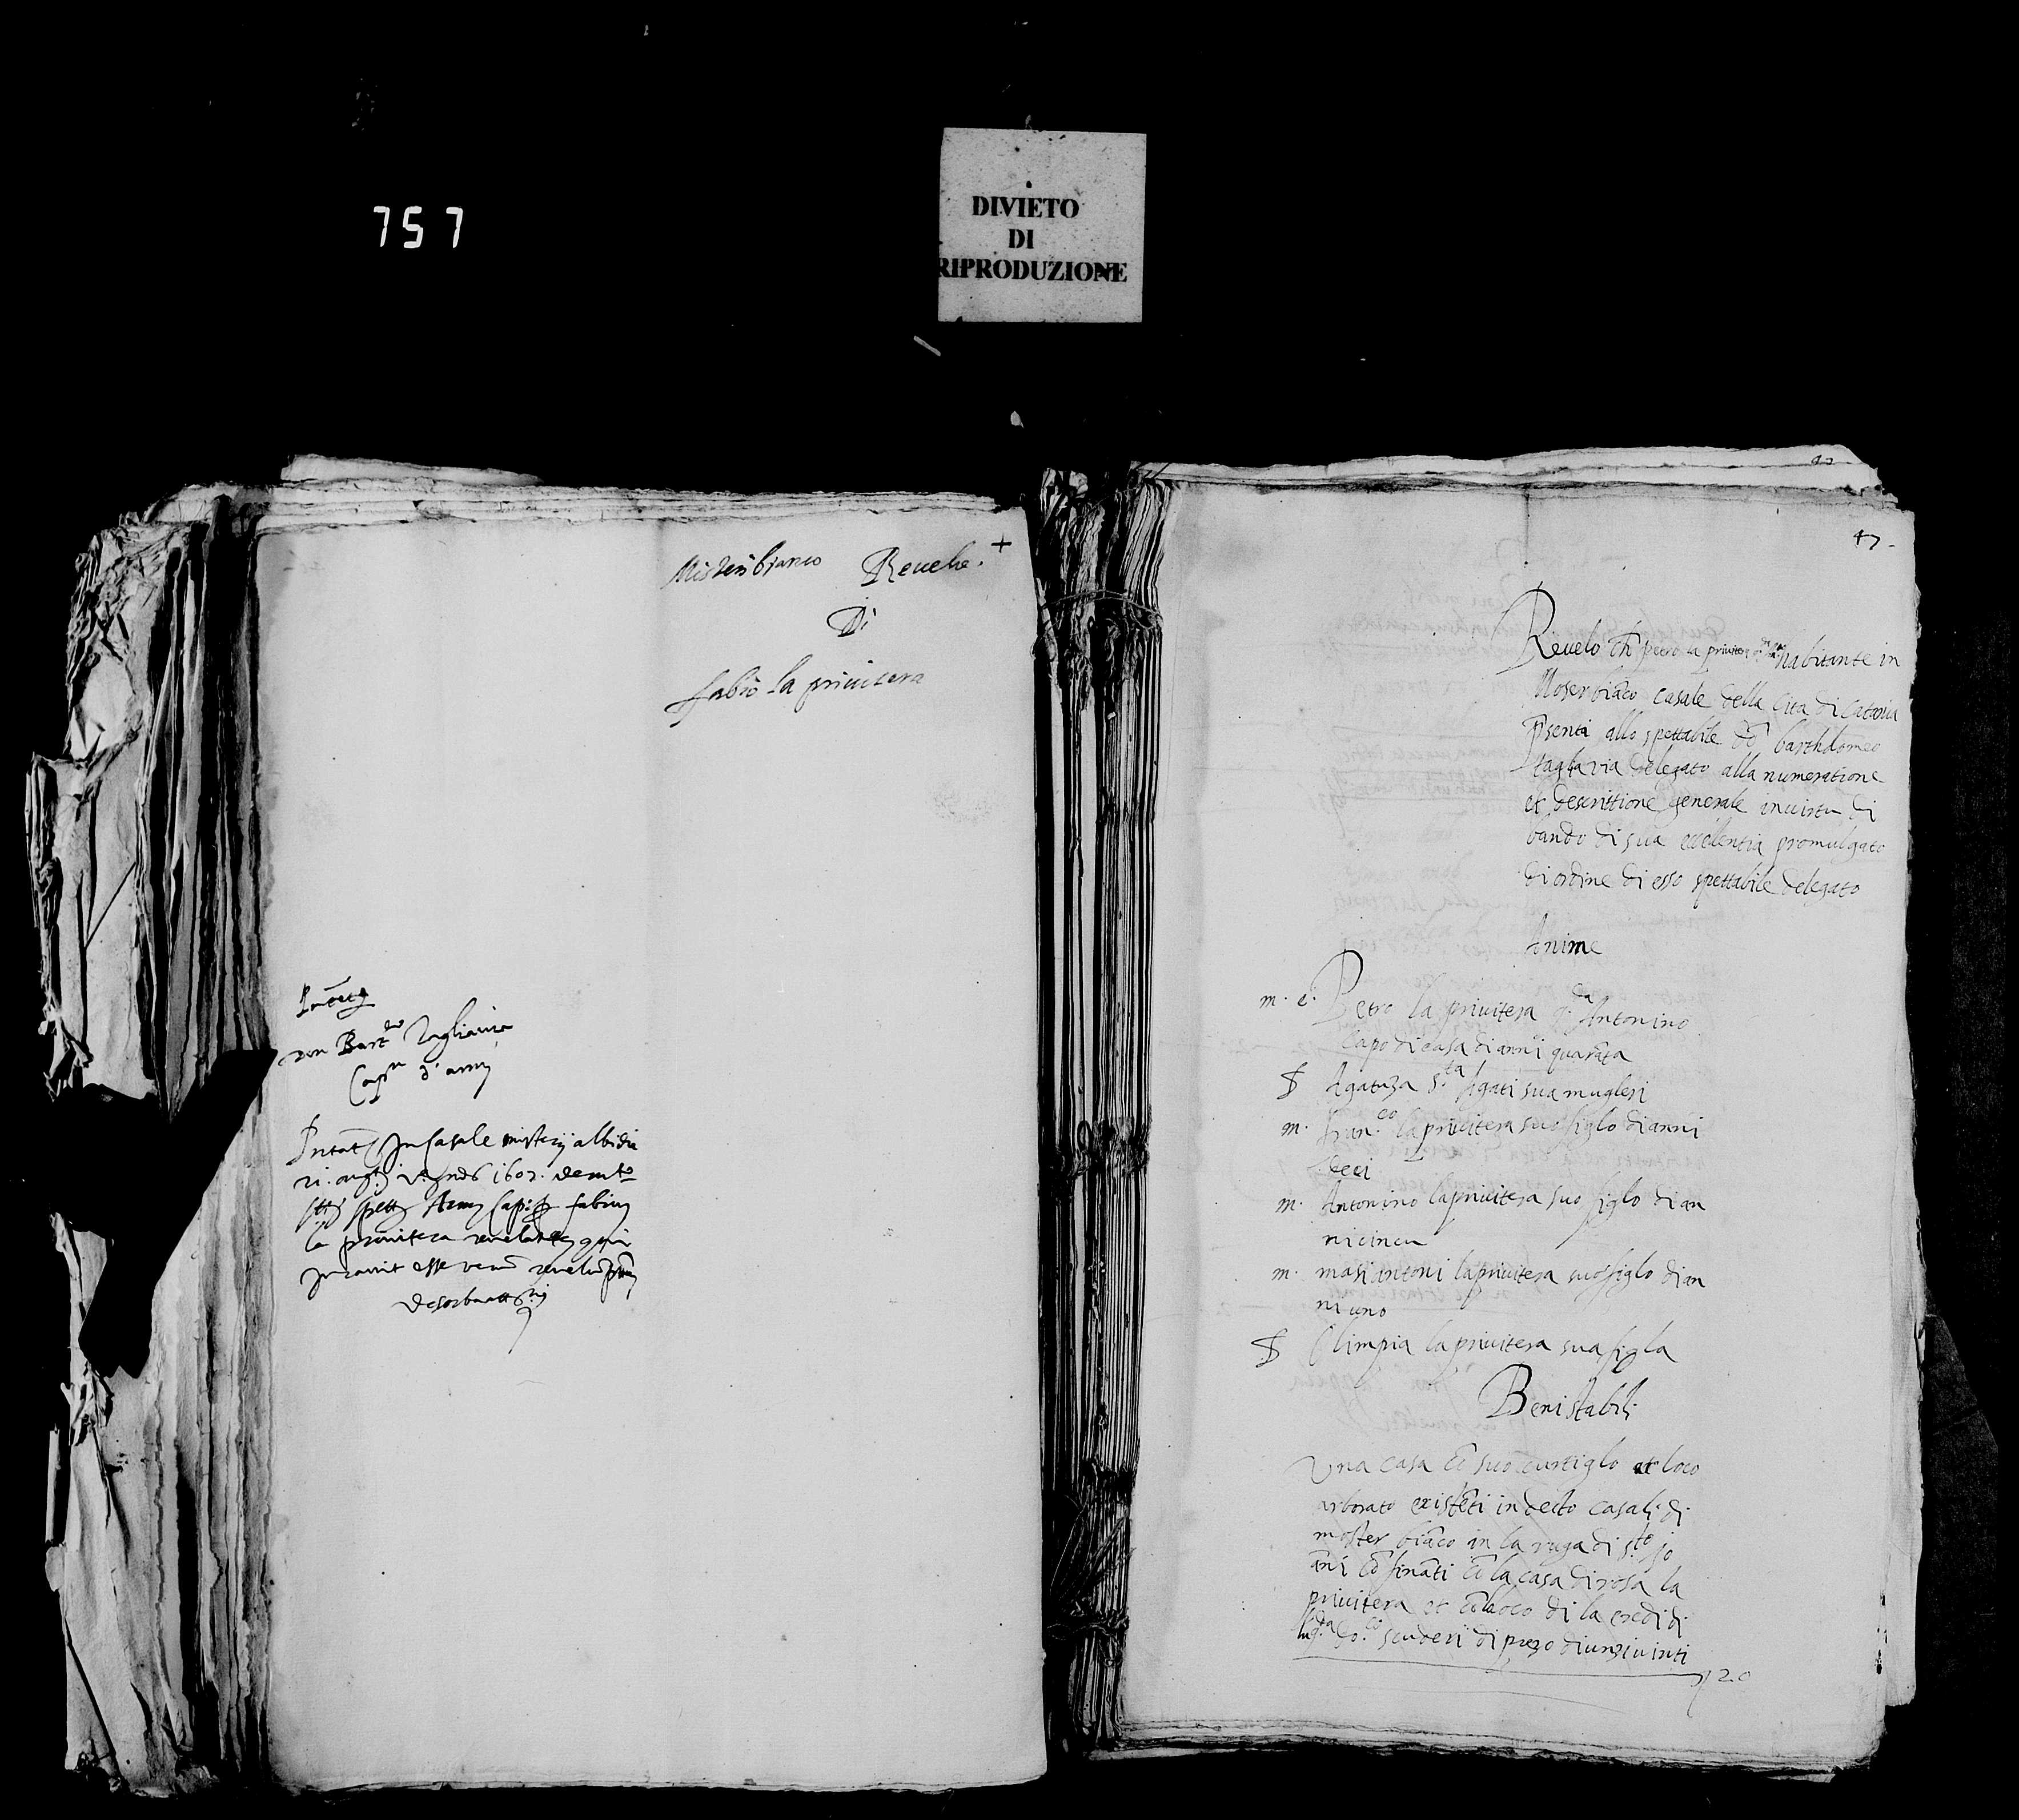 757
DIVIETO
DI
RIPRODUZIONE
Misteribianco Revelo
Di
fabio la privitera
don Bart. Tagliavia
Cap.n d'armi
in Casale misterij albi die
21. aug.ti 1607.
spett. Cap. fabius
la privitera revelans qui
juravit esse verum revelum
47
Revelo petro la privitera habitante in
Moserbiãco casale della cita di catania
p̃senti allo spettabile dõ bartholomeo
taglavia delegato alla numeratione
et descrittione generale in virtu di
bando di sua eccelentia promulgato
di ordine di esso spettabile delegato
Anime
m. c. Petro la privitera q.da Antonino
Capo di casa di anni quarãta
f Agatuza s.ta Agati sua mugleri
m. Fran.co la privitera suo figlo di anni
deci
m. Antonino la privitera suo figlo di an
ni cincu
m. masi antoni la privitera suo figlo di an
ni uno
f Olimpia la privitera sua figla
Beni stabili
Una casa cõ suo curtiglo et loco
arborato existẽti in decto casali di
moster biãco in la ruga di s.to jo
ãni cõfinãti cõ la casa di rosa la
privitera et cõ la loco di la eredi di
q.da scuderi di prezo di unzi vinti
20